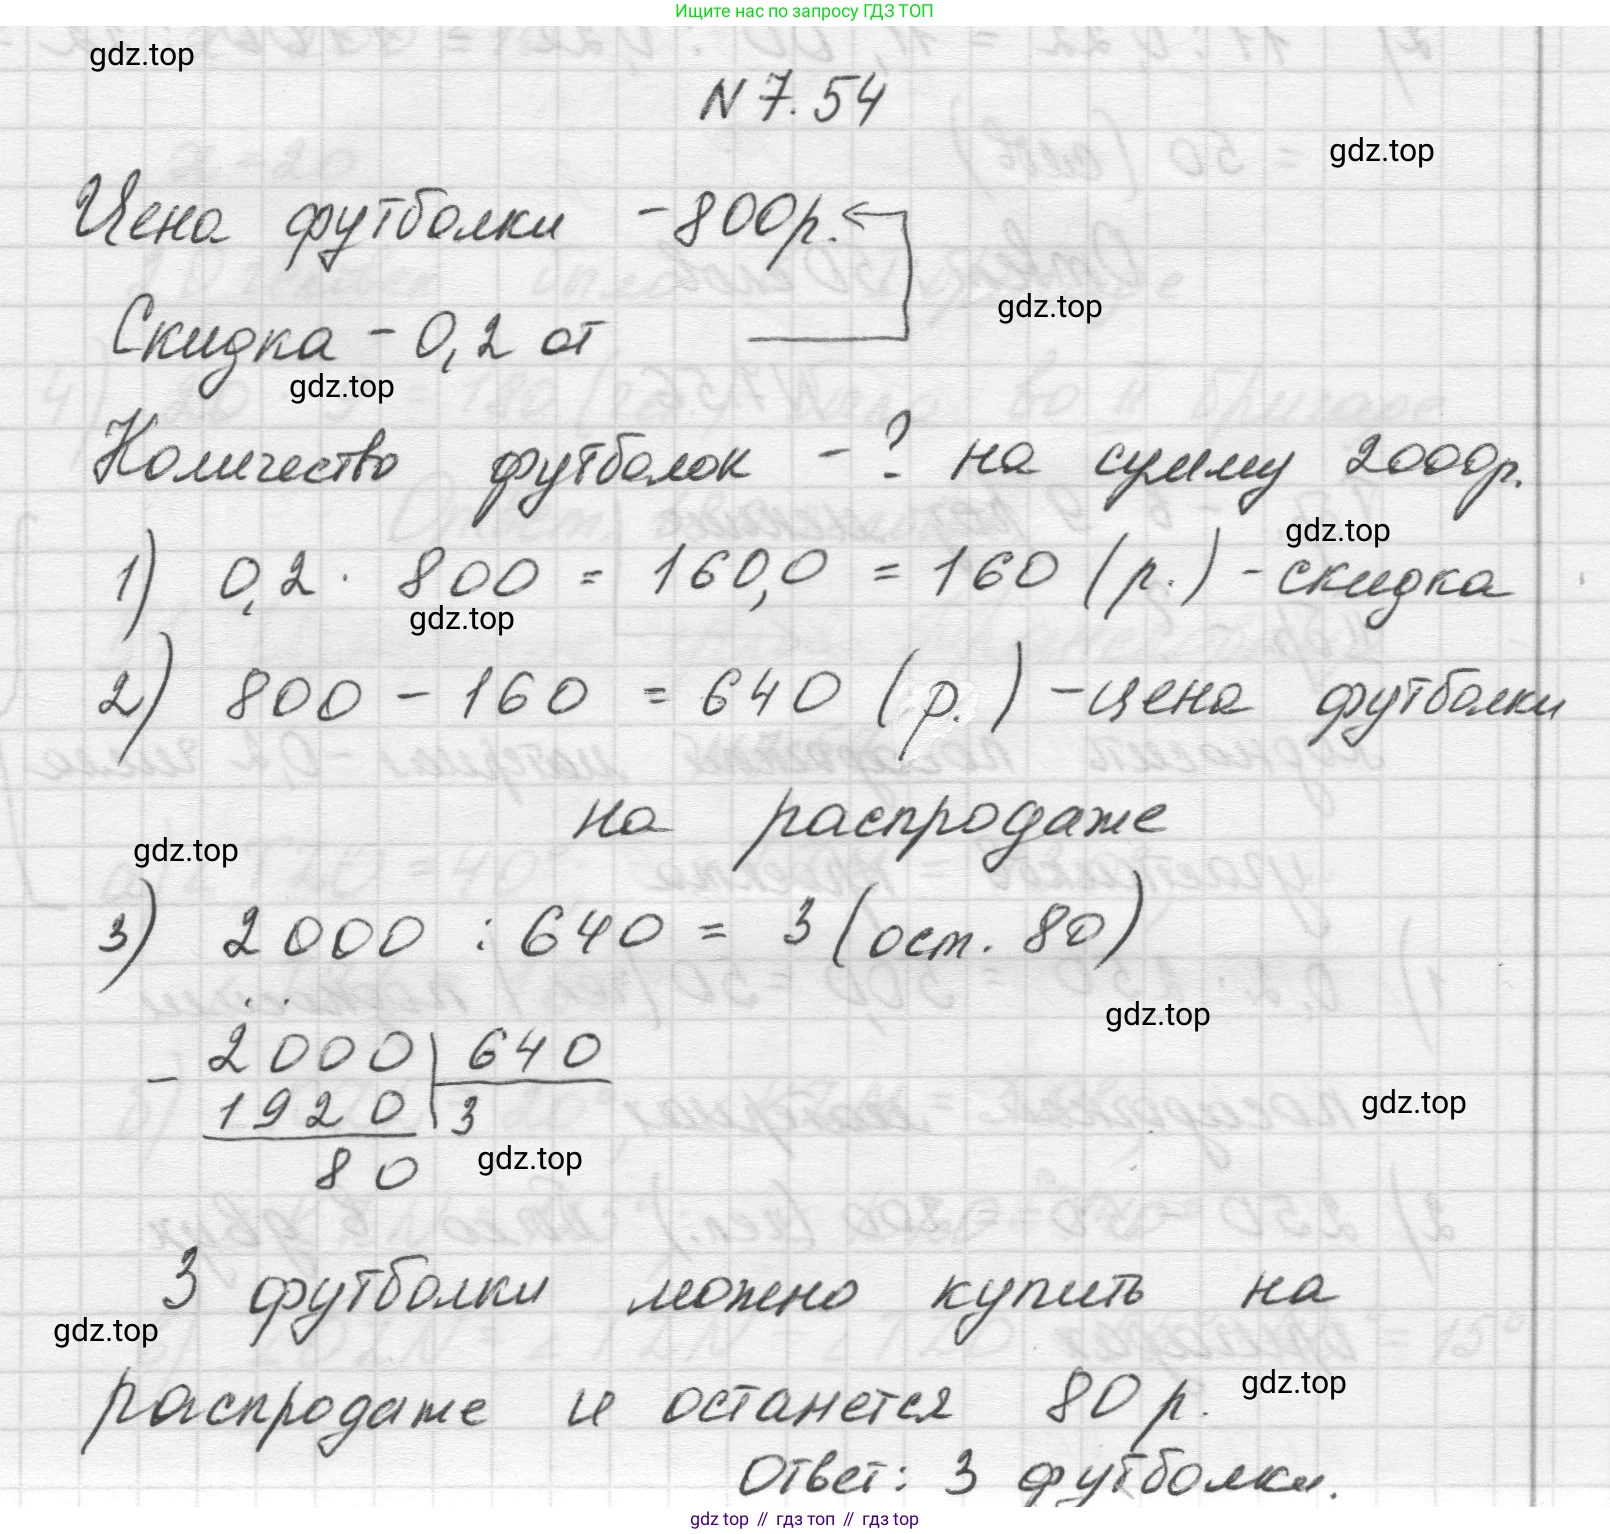 Ищите нас по запросу ГДЗ ТОП
gdz.top
N 7.54
gdz.top
Цена футболки - 800р.
gdz.top
Скидка - 0,2 от
gdz.top
Количество футболок - ? на сумму 2000р.
gdz.top
1) 0,2 · 800 = 160,0 = 160 (р.) - скидка
gdz.top
2) 800 - 160 = 640 (р.) - цена футболки
на распродаже
gdz.top
3) 2000 : 640 = 3 (ост. 80)
gdz.top
- 2000 | 640
1920 | 3
gdz.top
80
gdz.top
3 футболки можно купить на
gdz.top
распродаже и останется 80 р.
gdz.top
Ответ: 3 футболки.
gdz top // гдз топ // gdz top